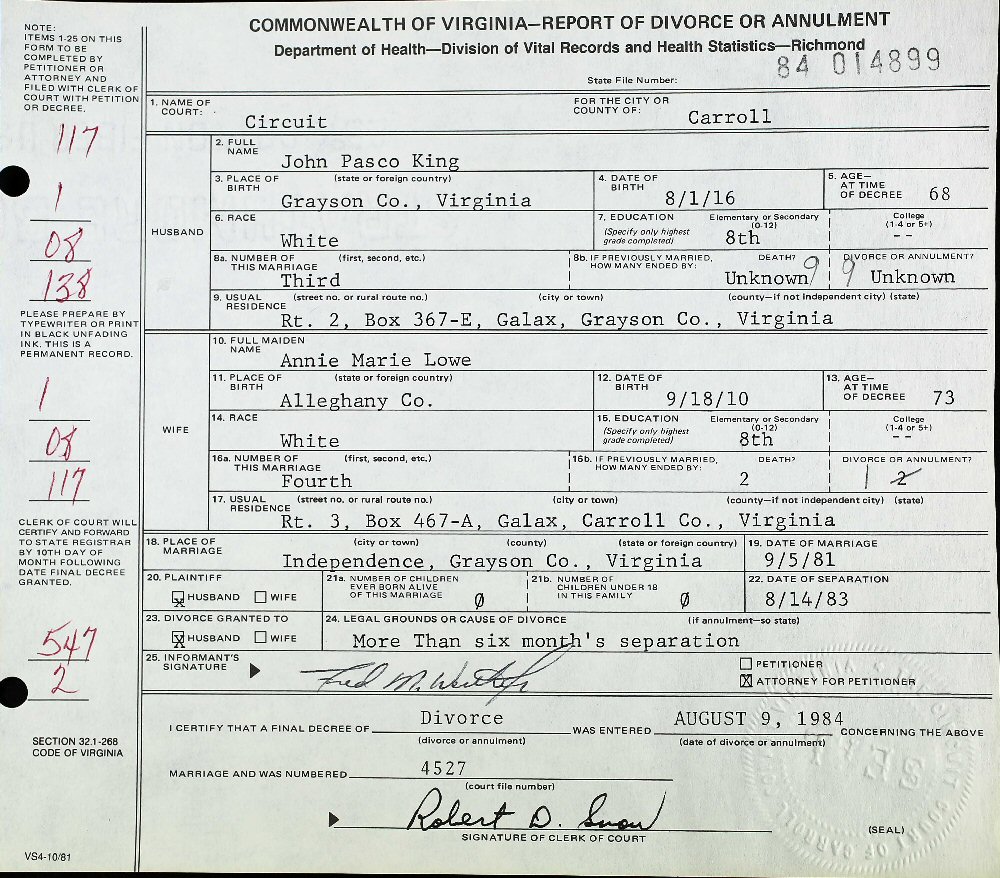 COMMONWEALTH OF VIRGINIA—REPORT OF DIVORCE OR ANNULMENT
Department of Health—Division of Vital Records and Health Statistics—Richmond
State File Number: 84 014899
NOTE:
ITEMS 1-25 ON THIS
FORM TO BE
COMPLETED BY
PETITIONER OR
ATTORNEY AND
FILED WITH CLERK OF
COURT WITH PETITION
OR DECREE.
117
1
08
138
PLEASE PREPARE BY
TYPEWRITER OR PRINT
IN BLACK UNFADING
INK. THIS IS A
PERMANENT RECORD.
1
08
117
CLERK OF COURT WILL
CERTIFY AND FORWARD
TO STATE REGISTRAR
BY 10TH DAY OF
MONTH FOLLOWING
DATE FINAL DECREE
GRANTED.
547
2
SECTION 32.1-268
CODE OF VIRGINIA
VS4-10/81
1. NAME OF COURT: Circuit FOR THE CITY OR COUNTY OF: Carroll
HUSBAND
2. FULL NAME John Pasco King
3. PLACE OF BIRTH (state or foreign country) Grayson Co., Virginia 4. DATE OF BIRTH 8/1/16 5. AGE— AT TIME OF DECREE 68
6. RACE White 7. EDUCATION (Specify only highest grade completed) Elementary or Secondary (0-12) 8th College (1-4 or 5+) --
8a. NUMBER OF THIS MARRIAGE (first, second, etc.) Third 8b. IF PREVIOUSLY MARRIED, HOW MANY ENDED BY: DEATH? Unknown 9 DIVORCE OR ANNULMENT? 9 Unknown
9. USUAL RESIDENCE (street no. or rural route no.) (city or town) (county—if not independent city) (state)
Rt. 2, Box 367-E, Galax, Grayson Co., Virginia
WIFE
10. FULL MAIDEN NAME Annie Marie Lowe
11. PLACE OF BIRTH (state or foreign country) Alleghany Co. 12. DATE OF BIRTH 9/18/10 13. AGE— AT TIME OF DECREE 73
14. RACE White 15. EDUCATION (Specify only highest grade completed) Elementary or Secondary (0-12) 8th College (1-4 or 5+) --
16a. NUMBER OF THIS MARRIAGE (first, second, etc.) Fourth 16b. IF PREVIOUSLY MARRIED, HOW MANY ENDED BY: DEATH? 2 DIVORCE OR ANNULMENT? 1 2
17. USUAL RESIDENCE (street no. or rural route no.) (city or town) (county—if not independent city) (state)
Rt. 3, Box 467-A, Galax, Carroll Co., Virginia
18. PLACE OF MARRIAGE (city or town) (county) (state or foreign country) Independence, Grayson Co., Virginia 19. DATE OF MARRIAGE 9/5/81
20. PLAINTIFF X HUSBAND WIFE 21a. NUMBER OF CHILDREN EVER BORN ALIVE OF THIS MARRIAGE 0 21b. NUMBER OF CHILDREN UNDER 18 IN THIS FAMILY 0 22. DATE OF SEPARATION 8/14/83
23. DIVORCE GRANTED TO X HUSBAND WIFE 24. LEGAL GROUNDS OR CAUSE OF DIVORCE (if annulment—so state) More Than six month's separation
25. INFORMANT'S SIGNATURE Fred M. PETITIONER
X ATTORNEY FOR PETITIONER
I CERTIFY THAT A FINAL DECREE OF Divorce WAS ENTERED AUGUST 9, 1984 CONCERNING THE ABOVE
(divorce or annulment) (date of divorce or annulment)
MARRIAGE AND WAS NUMBERED 4527
(court file number)
Robert D. Snow
SIGNATURE OF CLERK OF COURT
(SEAL)